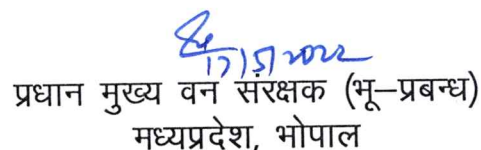 17/5/2022
प्रधान मुख्य वन संरक्षक (भू–प्रबन्ध)
मध्यप्रदेश, भोपाल